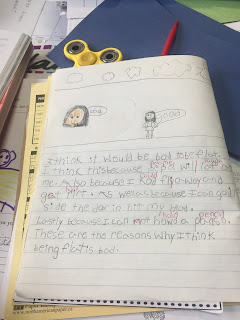 I think it would be bad to be flat.
I think this because will at
me. Also because I fly away and
get hirt. As well as because I can get
side the dor in hit my hed.
hold pencil
Lastly because I can not howd a
These are the reasons why I think
being flat is bad.